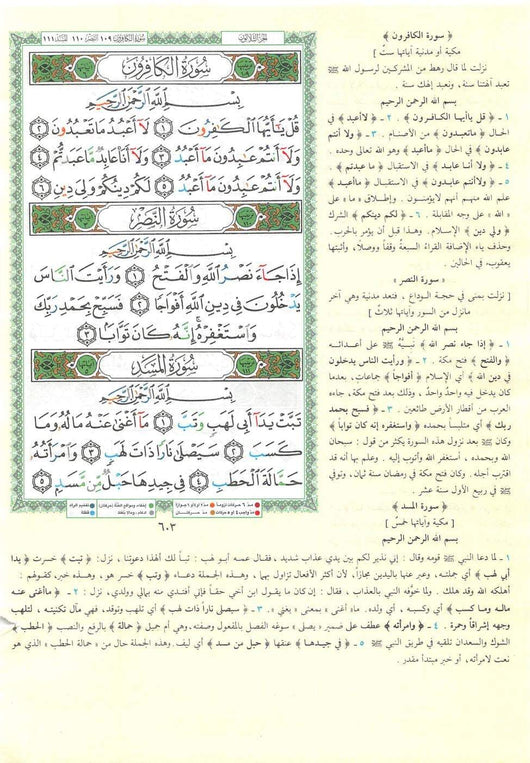 الجزء الثلاثون
سورة الكافرون ١٠٩ النصر ١١٠ المسد ١١١
سُورَةُ الكَافِرُونَ
بِسْمِ اللَّهِ الرَّحْمَٰنِ الرَّحِيمِ
قُلْ يَٰٓأَيُّهَا ٱلْكَٰفِرُونَ ١ لَآ أَعْبُدُ مَا تَعْبُدُونَ ٢
وَلَآ أَنتُمْ عَٰبِدُونَ مَآ أَعْبُدُ ٣ وَلَآ أَنَا۠ عَابِدٌ مَّا عَبَدتُّمْ ٤
وَلَآ أَنتُمْ عَٰبِدُونَ مَآ أَعْبُدُ ٥ لَكُمْ دِينُكُمْ وَلِىَ دِينِ ٦
سُورَةُ النَّصْرِ
بِسْمِ اللَّهِ الرَّحْمَٰنِ الرَّحِيمِ
إِذَا جَآءَ نَصْرُ ٱللَّهِ وَٱلْفَتْحُ ١ وَرَأَيْتَ ٱلنَّاسَ
يَدْخُلُونَ فِى دِينِ ٱللَّهِ أَفْوَاجًا ٢ فَسَبِّحْ بِحَمْدِ رَبِّكَ
وَٱسْتَغْفِرْهُ إِنَّهُۥ كَانَ تَوَّابًۢا ٣
سُورَةُ المَسَدِ
بِسْمِ اللَّهِ الرَّحْمَٰنِ الرَّحِيمِ
تَبَّتْ يَدَآ أَبِى لَهَبٍ وَتَبَّ ١ مَآ أَغْنَىٰ عَنْهُ مَالُهُۥ وَمَا
كَسَبَ ٢ سَيَصْلَىٰ نَارًا ذَاتَ لَهَبٍ ٣ وَٱمْرَأَتُهُۥ
حَمَّالَةَ ٱلْحَطَبِ ٤ فِى جِيدِهَا حَبْلٌ مِّن مَّسَدٍۭ ٥
٦٠٣
﴿ سورة الكافرون ﴾
[ مكية أو مدنية آياتها ستّ ]
نزلت لما قال رهط من المشركين لرسول الله ﷺ
تعبد آلهتنا سنة، ونعبد إلهك سنة.
بسم الله الرحمن الرحيم
١ - ﴿ قل يا أيها الكافرون ﴾. ٢ - ﴿ لا أعبد ﴾ في
الحال ﴿ ما تعبدون ﴾ من الأصنام. ٣ - ﴿ ولا أنتم
عابدون ﴾ في الحال ﴿ ما أعبد ﴾ وهو الله تعالى وحده.
٤ - ﴿ ولا أنا عابد ﴾ في الاستقبال ﴿ ما عبدتم ﴾.
٥ - ﴿ ولا أنتم عابدون ﴾ في الاستقبال ﴿ ما أعبد ﴾
علم الله منهم أنهم لا يؤمنون. وإطلاق ﴿ ما ﴾ على
﴿ الله ﴾ على وجه المقابلة. ٦ - ﴿ لكم دينكم ﴾ الشرك
﴿ ولي دين ﴾ الإسلام. وهذا قبل أن يؤمر بالحرب.
وحذف ياء الإضافة القراءُ السبعةُ وقفاً ووصلاً، وأثبتها
يعقوب في الحالين.
﴿ سورة النصر ﴾
[ نزلت بمنى في حجة الوداع، فتعد مدنية وهي آخر
ما نزل من السور وآياتها ثلاث ]
بسم الله الرحمن الرحيم
١ - ﴿ إذا جاء نصر الله ﴾ نبيَّه ﷺ على أعدائه
﴿ والفتح ﴾ فتح مكة. ٢ - ﴿ ورأيت الناس يدخلون
في دين الله ﴾ أي الإسلام ﴿ أفواجاً ﴾ جماعات، بعدما
كان يدخل فيه واحد واحد، وذلك بعد فتح مكة، جاءه
العرب من أقطار الأرض طائعين. ٣ - ﴿ فسبح بحمد
ربك ﴾ أي متلبساً بحمده ﴿ واستغفره إنه كان تواباً ﴾
وكان ﷺ بعد نزول هذه السورة يكثر من قول: سبحان
الله وبحمده، أستغفر الله وأتوب إليه. وعلم بها أنه قد
اقترب أجله. وكان فتح مكة في رمضان سنة ثمان، وتوفي
ﷺ في ربيع الأول سنة عشر.
﴿ سورة المسد ﴾
[ مكية وآياتها خمسٌ ]
بسم الله الرحمن الرحيم
١ - لما دعا النبي ﷺ قومه وقال: إني نذير لكم بين يدي عذاب شديد، فقال عمه أبو لهب: تباً لك ألهذا دعوتنا، نزل: ﴿ تبت ﴾ خسرت ﴿ يدا
أبي لهب ﴾ أي جملته، وعبر عنها باليدين مجازاً، لأن أكثر الأفعال تزاول بهما، وهذه الجملة دعاء ﴿ وتب ﴾ خسر هو، وهذه خبر، كقولهم:
أهلكه الله وقد هلك. ولما خوّفه النبي بالعذاب، فقال: إن كان ما يقول ابن أخي حقاً فإني أفتدي منه بمالي وولدي، نزل: ٢ - ﴿ ما أغنى عنه
ماله وما كسب ﴾ أي وكسبه، أي ولده. ما أغنى ﴾ بمعنى ﴿ يغني ﴾. ٣ - ﴿ سيصلى ناراً ذات لهب ﴾ أي تلهب وتوقد، فهي مآل تكنيته، لتلهب
وجهه إشراقاً وحمرة. ٤ - ﴿ وامرأته ﴾ عطف على ضمير ﴿ يصلى ﴾ سوغه الفصل بالمفعول وصفته، وهي أم جميل ﴿ حمالة ﴾ بالرفع والنصب ﴿ الحطب ﴾
الشوك والسعدان تلقيه في طريق النبي ﷺ. ٥ - ﴿ في جيدها ﴾ عنقها ﴿ حبل من مسد ﴾ أي ليف. وهذه الجملة حال من ﴿ حمالة الحطب ﴾ الذي هو
نعت لامرأته، أو خبر مبتدأ مقدر.